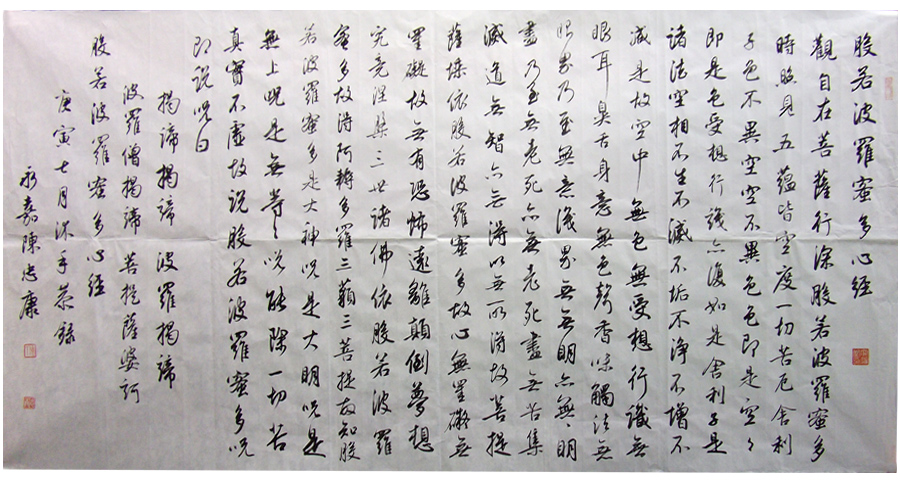 般若波羅蜜多心經
觀自在菩薩行深般若波羅蜜多
時照見五蘊皆空度一切苦厄舍利
子色不異空空不異色色即是空々
即是色受想行識亦復如是舍利子是
諸法空相不生不滅不垢不淨不增不
減是故空中無色無受想行識無
眼耳鼻舌身意無色聲香味觸法無
眼界乃至無意識界無無明亦無々明
盡乃至無老死亦無老死盡無苦集
滅道無智亦無得以無所得故菩提
薩埵依般若波羅蜜多故心無罣礙無
罣礙故無有恐怖遠離顛倒夢想
究竟涅槃三世諸佛依般若波羅
蜜多故得阿耨多羅三藐三菩提故知般
若波羅蜜多是大神咒是大明咒是
無上咒是無等々咒能除一切苦
真實不虛故說般若波羅蜜多咒
即說咒曰
揭諦揭諦 波羅揭諦
波羅僧揭諦 菩提薩婆訶
般若波羅蜜多心經
庚寅七月沐手恭錄
永嘉陳忠康